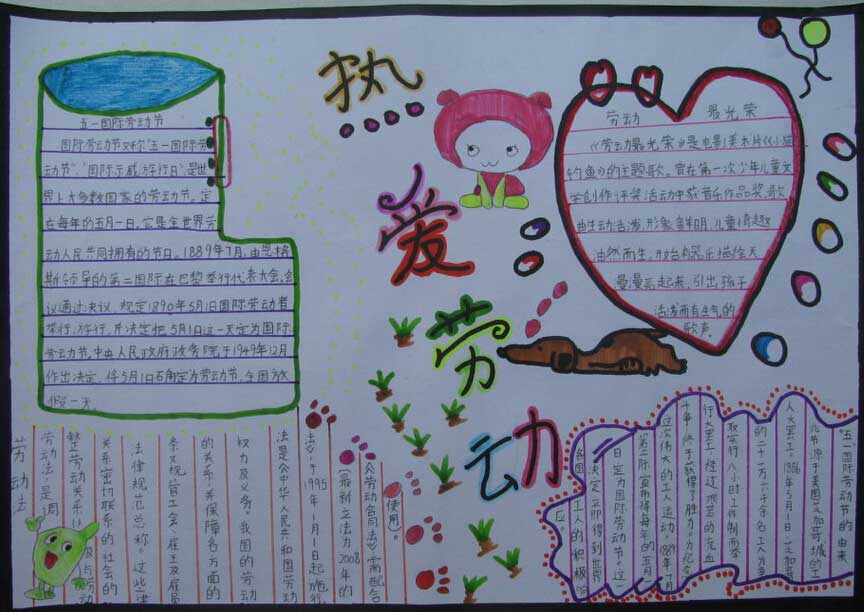 执爱劳动
五一国际劳动节
国际劳动节又称"五一国际劳
动节"、"国际示威游行日",是世
界上大多数国家的劳动节。定
在每年的五月一日,它是全世界劳
动人民共同拥有的节日。1889年7月,由恩格
斯领导的第二国际在巴黎举行代表大会,会
议通过决议,规定1890年5月1日国际劳动者
举行,游行,并决定把5月1日这一天定为国际
劳动节。中央人民政府政务院于1949年12月
作出决定,将5月1日确定为劳动节,全国放
假一天。
劳动 最光荣
《劳动最光荣》是电影美术片《小猫
钓鱼》的主题歌。曾在第一次少年儿童文
学创作评奖活动中获音乐作品奖。歌
曲生动活泼,形象鲜明,儿童情趣
油然而生,开始有器乐描绘天
漫漫亮起来,引出孩子
活泼而有生气的
歌声。
劳动法
劳动法,是调
整劳动关系以及与劳动
关系密切联系的社会的
法律规范总称。这些法
条文规管工会、雇主及雇员
的关系,并保障各方面的
权力及义务。我国的劳动
法是《中华人民共和国劳动
法》,于1995年1月1日起施行,
(最新立法为2008年的
《劳动合同法》,需配合
使用)。
"五一国际劳动节的由来
节源于美国芝加哥城的工
人大罢工,1886年5月1日,芝加哥
的二十一万六千余名工人为争
取实行八小时工作制而举
行大罢工,经过艰苦的流血
斗争,终于获得了胜利。为纪念
这次伟大的工人运动,1889年7月
第二国际宣布将每年的五月一
日定为国际劳动节。这一
决定立即得到世界
各国工人的积极响
应。